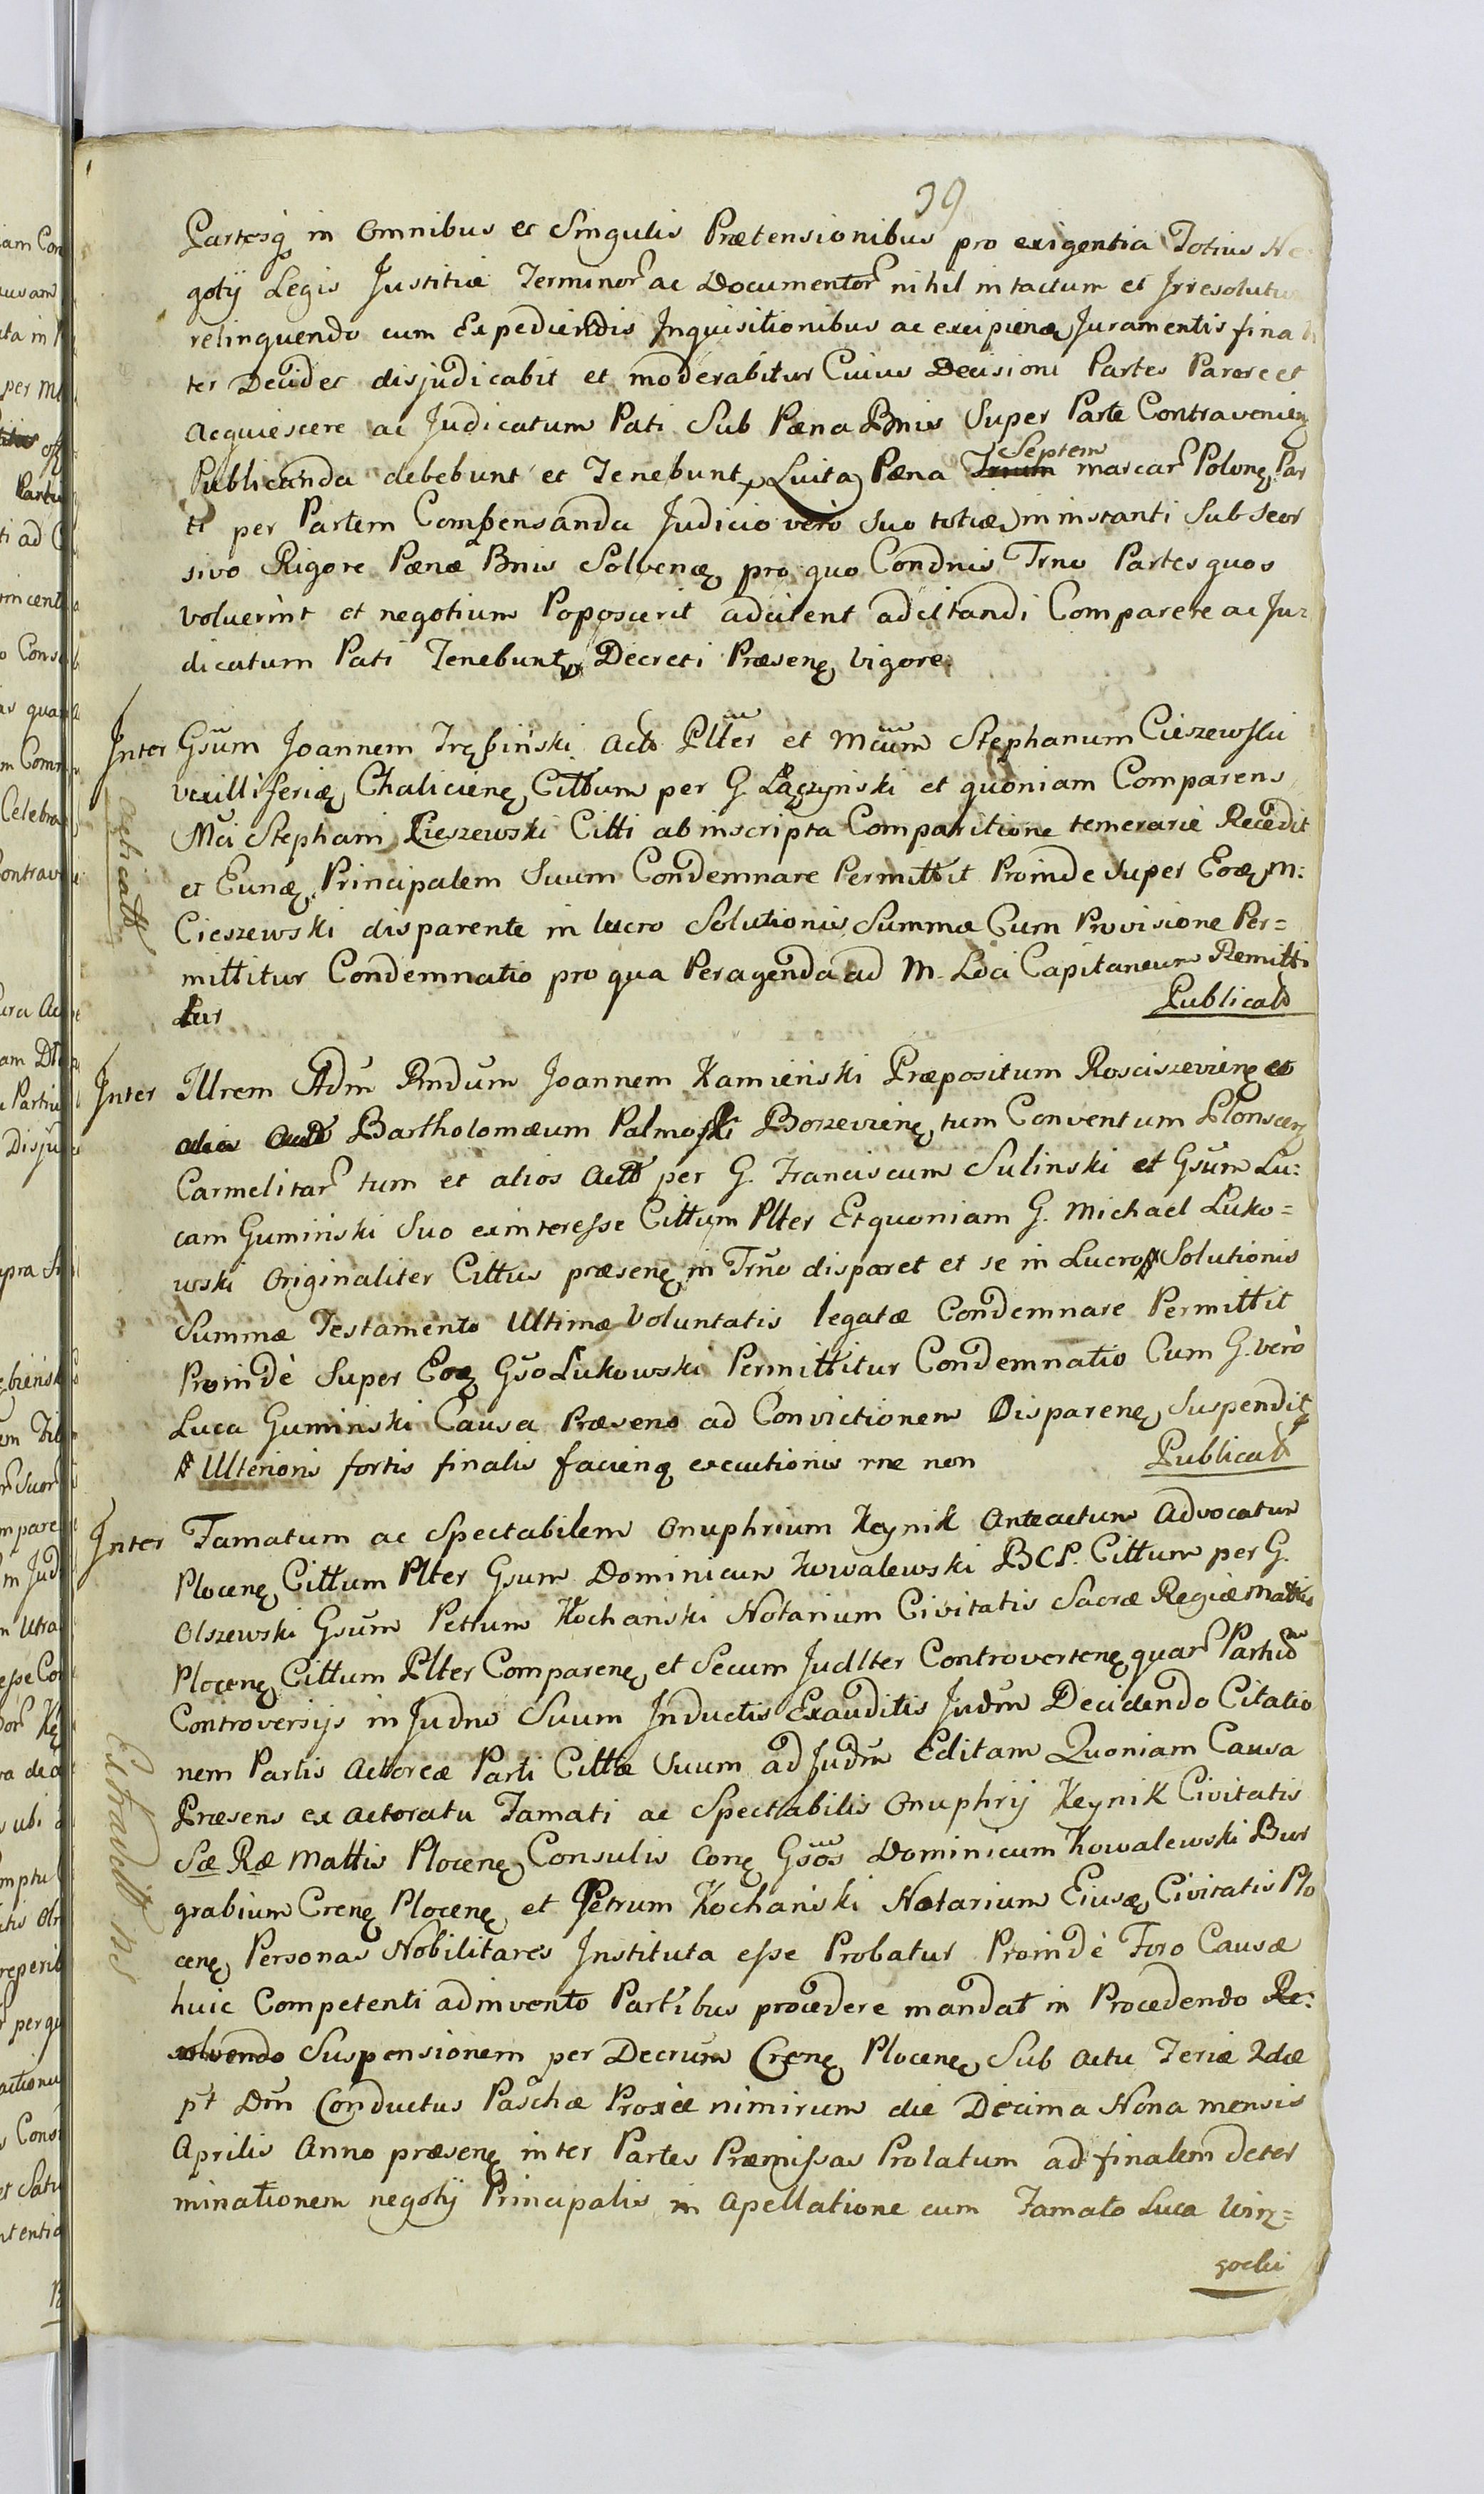 39
Partesq in Omnibus et Singulis Prætensionibus pro exigentia Totius Ne
gotij Legis Justitiæ Terminor ac Documentor nihil intactum et Irresolutu
relinquendo cum Expediendis Inquisitionibus ac excipienq Juramentis fina
ter Decidet disjudicabit et moderabitur Cuius Decisioni Partes Parere et
Acquiescere ac Judicatum Pati Sub Pæna Bnis Super Parte Contravenien
Publicanda debebunt et Tenebunt Luita Pæna Septem marcar Polonę Par
ti per Partem Compensanda Judicio verò Suo totiæ in instanti Sub Seor
sivo Rigore Pænæ Bnis Solvenę pro quo Condnis Trno Partes quos
voluerint et negotium Poposcerit adcitent adcitandi Comparere ac Ju=
dicatum Pati Tenebunt Decreti Præsenę Vigore
Inter Gsum Joannem Trębiński Actò Plter et Mcum Stephanum Cieszewski
Vexilliferiæ Chalicienę Cittum per G. Łączynski et quoniam Comparens
Mci Stephani Cieszewski Citti ab inscripta Comparitione temerariè Recedit
et Eunæ Principalem Suum Condemnare Permittit Proinde super Eoæ M:
Cieszewski disparente in lucro Solutionis Summæ Cum Provisione Per=
mittitur Condemnatio pro qua Peragenda ad M. Loci Capitaneum Remitti
tur
Publicatò
Inter Illrem Adm Rndum Joannem Kamieński Præpositum Rosciszevienę et
alia Bartholomæum Palmoski Borzevienę tum Conventum Plonscen
Carmelitar tum et alios Actò per G. Franciscum Sulinski et Gsum Lu:
cam Gumiński Suo ex interesse Cittum Plter Et quoniam G. Michael Luko=
wski Originaliter Cittus præsenę in Trno disparet et se in Lucro Solutionis
Summæ Testamento Ultimæ Voluntatis legatæ Condemnare Permittit
Proindè Super Eoæ Gso Lukowski Permittitur Condemnatio Cum G. verò
Luca Gumiński Causa Præsens ad Convictionem Disparenę Suspendit
Ulterioris fortis finalis facienq executionis rne non
Publicatò
Inter Famatum ac Spectabilem Onuphrium Keynik Anteactum Advocatum
Plocenę Cittum Plter Gsum Dominicum Kowalewski BCP. Cittum per G.
Olszewski Gsum Petrum Kochański Notarium Civitatis Sacræ Regiæ Mattis
Plocenę Cittum Plter Comparenę et Secum Judlter Controvertenę quar Partiu
Controversijs in Judno Suum Inductis Exauditis Judm Decidendo Citatio
nem Partis Actoreæ Parti Cittæ Suum ad Judm Editam Quoniam Causa
Præsens ex actoratu Famati ac Spectabilis Onuphrij Keynik Civitatis
Sæ Ræ Mattis Plocenę Consulis Conę Gsos Dominicum Kowalewski Bur
grabium Crenę Plocenę et Petrum Kochański Notarium Eiusæ Civitatis Plo
cenę Personas Nobilitares Instituta esse Probatur Proindè Foro Causæ
huic Competenti adinvento Partibus procedere mandat in Procedendo Re:
solvendo Suspensionem per Decrum Crenę Plocenę Sub Actu Feriæ 2dæ
pt Dm Conductus Paschæ Proxiæ nimirum die Decima Nona mensis
Aprilis Anno præsenę inter Partes Præmissas Prolatum ad finalem deter
minationem negotij Principalis in Apellatione cum Famato Luca Win=